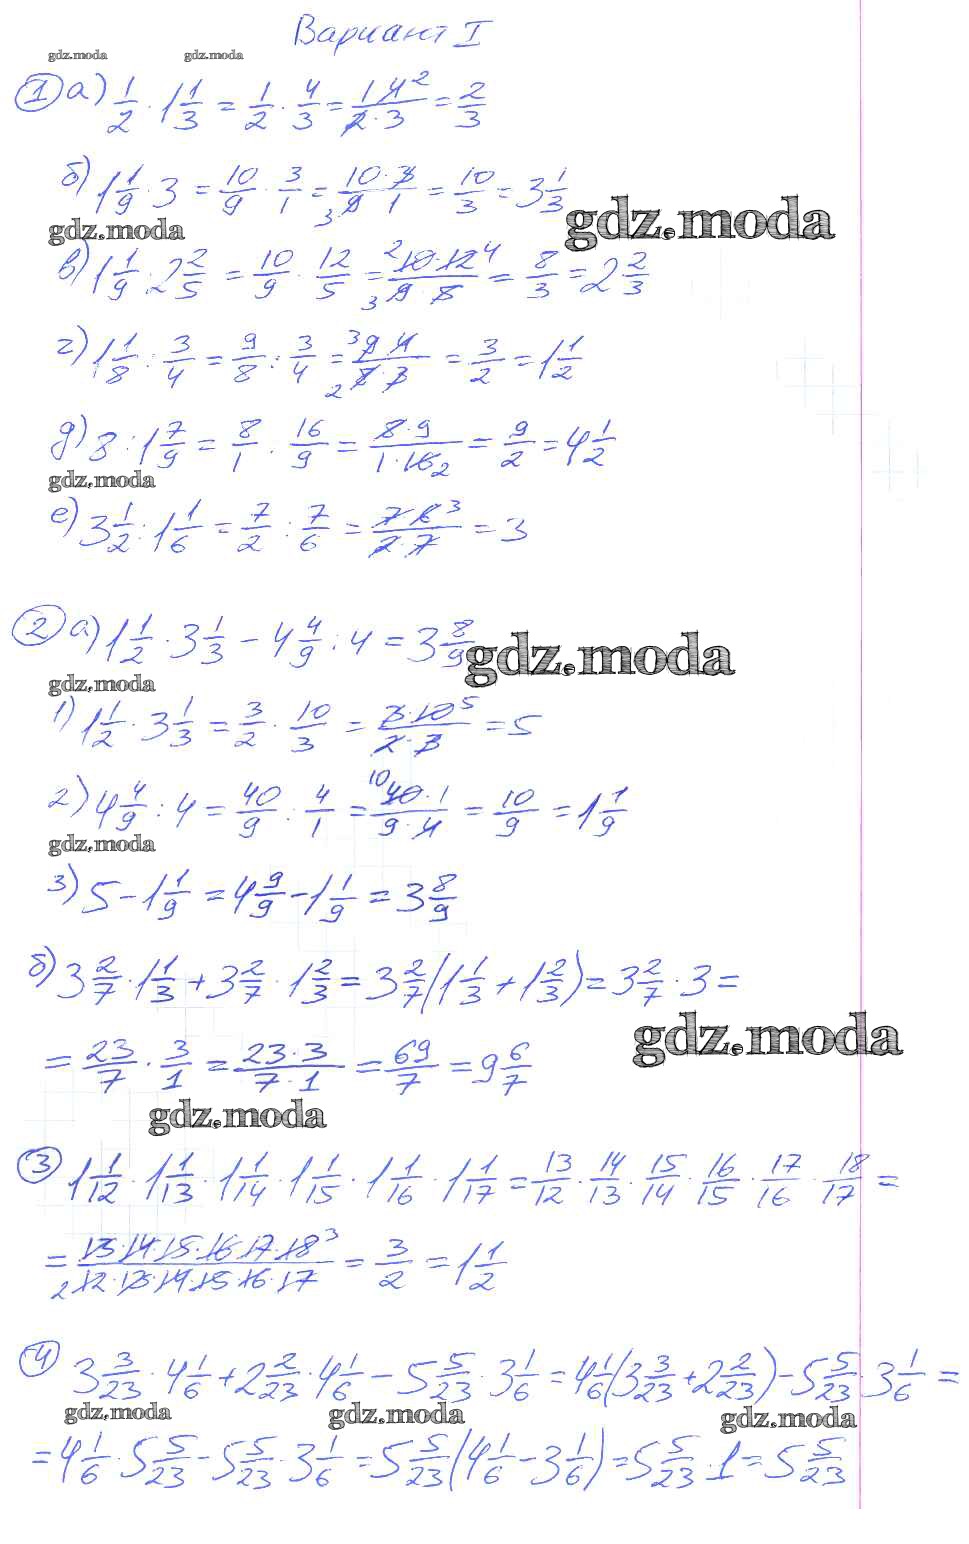 Вариант I
gdz.moda gdz.moda
① а) 1/2 · 1 1/3 = 1/2 · 4/3 = 1·4²/2·3 = 2/3
б) 1 1/9 · 3 = 10/9 · 3/1 = 10·3/₃9·1 = 10/3 = 3 1/3
gdz.moda gdz.moda
в) 1 1/9 · 2 2/5 = 10/9 · 12/5 = ²10·12⁴/₃9·5 = 8/3 = 2 2/3
г) 1 1/8 : 3/4 = 9/8 : 3/4 = ³9·4/₂8·3 = 3/2 = 1 1/2
д) 8 : 1 7/9 = 8/1 : 16/9 = 8·9/1·16₂ = 9/2 = 4 1/2
gdz.moda
е) 3 1/2 : 1 1/6 = 7/2 : 7/6 = 7·6³/2·7 = 3
② а) 1 1/2 · 3 1/3 − 4 4/9 : 4 = 3 8/9
gdz.moda
gdz.moda
1) 1 1/2 · 3 1/3 = 3/2 · 10/3 = 3·10⁵/2·3 = 5
2) 4 4/9 : 4 = 40/9 : 4/1 = ¹⁰40·1/9·4 = 10/9 = 1 1/9
gdz.moda
3) 5 − 1 1/9 = 4 9/9 − 1 1/9 = 3 8/9
б) 3 2/7 · 1 1/3 + 3 2/7 · 1 2/3 = 3 2/7 (1 1/3 + 1 2/3) = 3 2/7 · 3 =
gdz.moda
= 23/7 · 3/1 = 23·3/7·1 = 69/7 = 9 6/7
gdz.moda
③ 1 1/12 · 1 1/13 · 1 1/14 · 1 1/15 · 1 1/16 · 1 1/17 = 13/12 · 14/13 · 15/14 · 16/15 · 17/16 · 18/17 =
= 13·14·15·16·17·18³/₂12·13·14·15·16·17 = 3/2 = 1 1/2
④ 3 3/23 · 4 1/6 + 2 2/23 · 4 1/6 − 5 5/23 · 3 1/6 = 4 1/6 (3 3/23 + 2 2/23) − 5 5/23 · 3 1/6 =
gdz.moda gdz.moda gdz.moda
= 4 1/6 · 5 5/23 − 5 5/23 · 3 1/6 = 5 5/23 (4 1/6 − 3 1/6) = 5 5/23 · 1 = 5 5/23